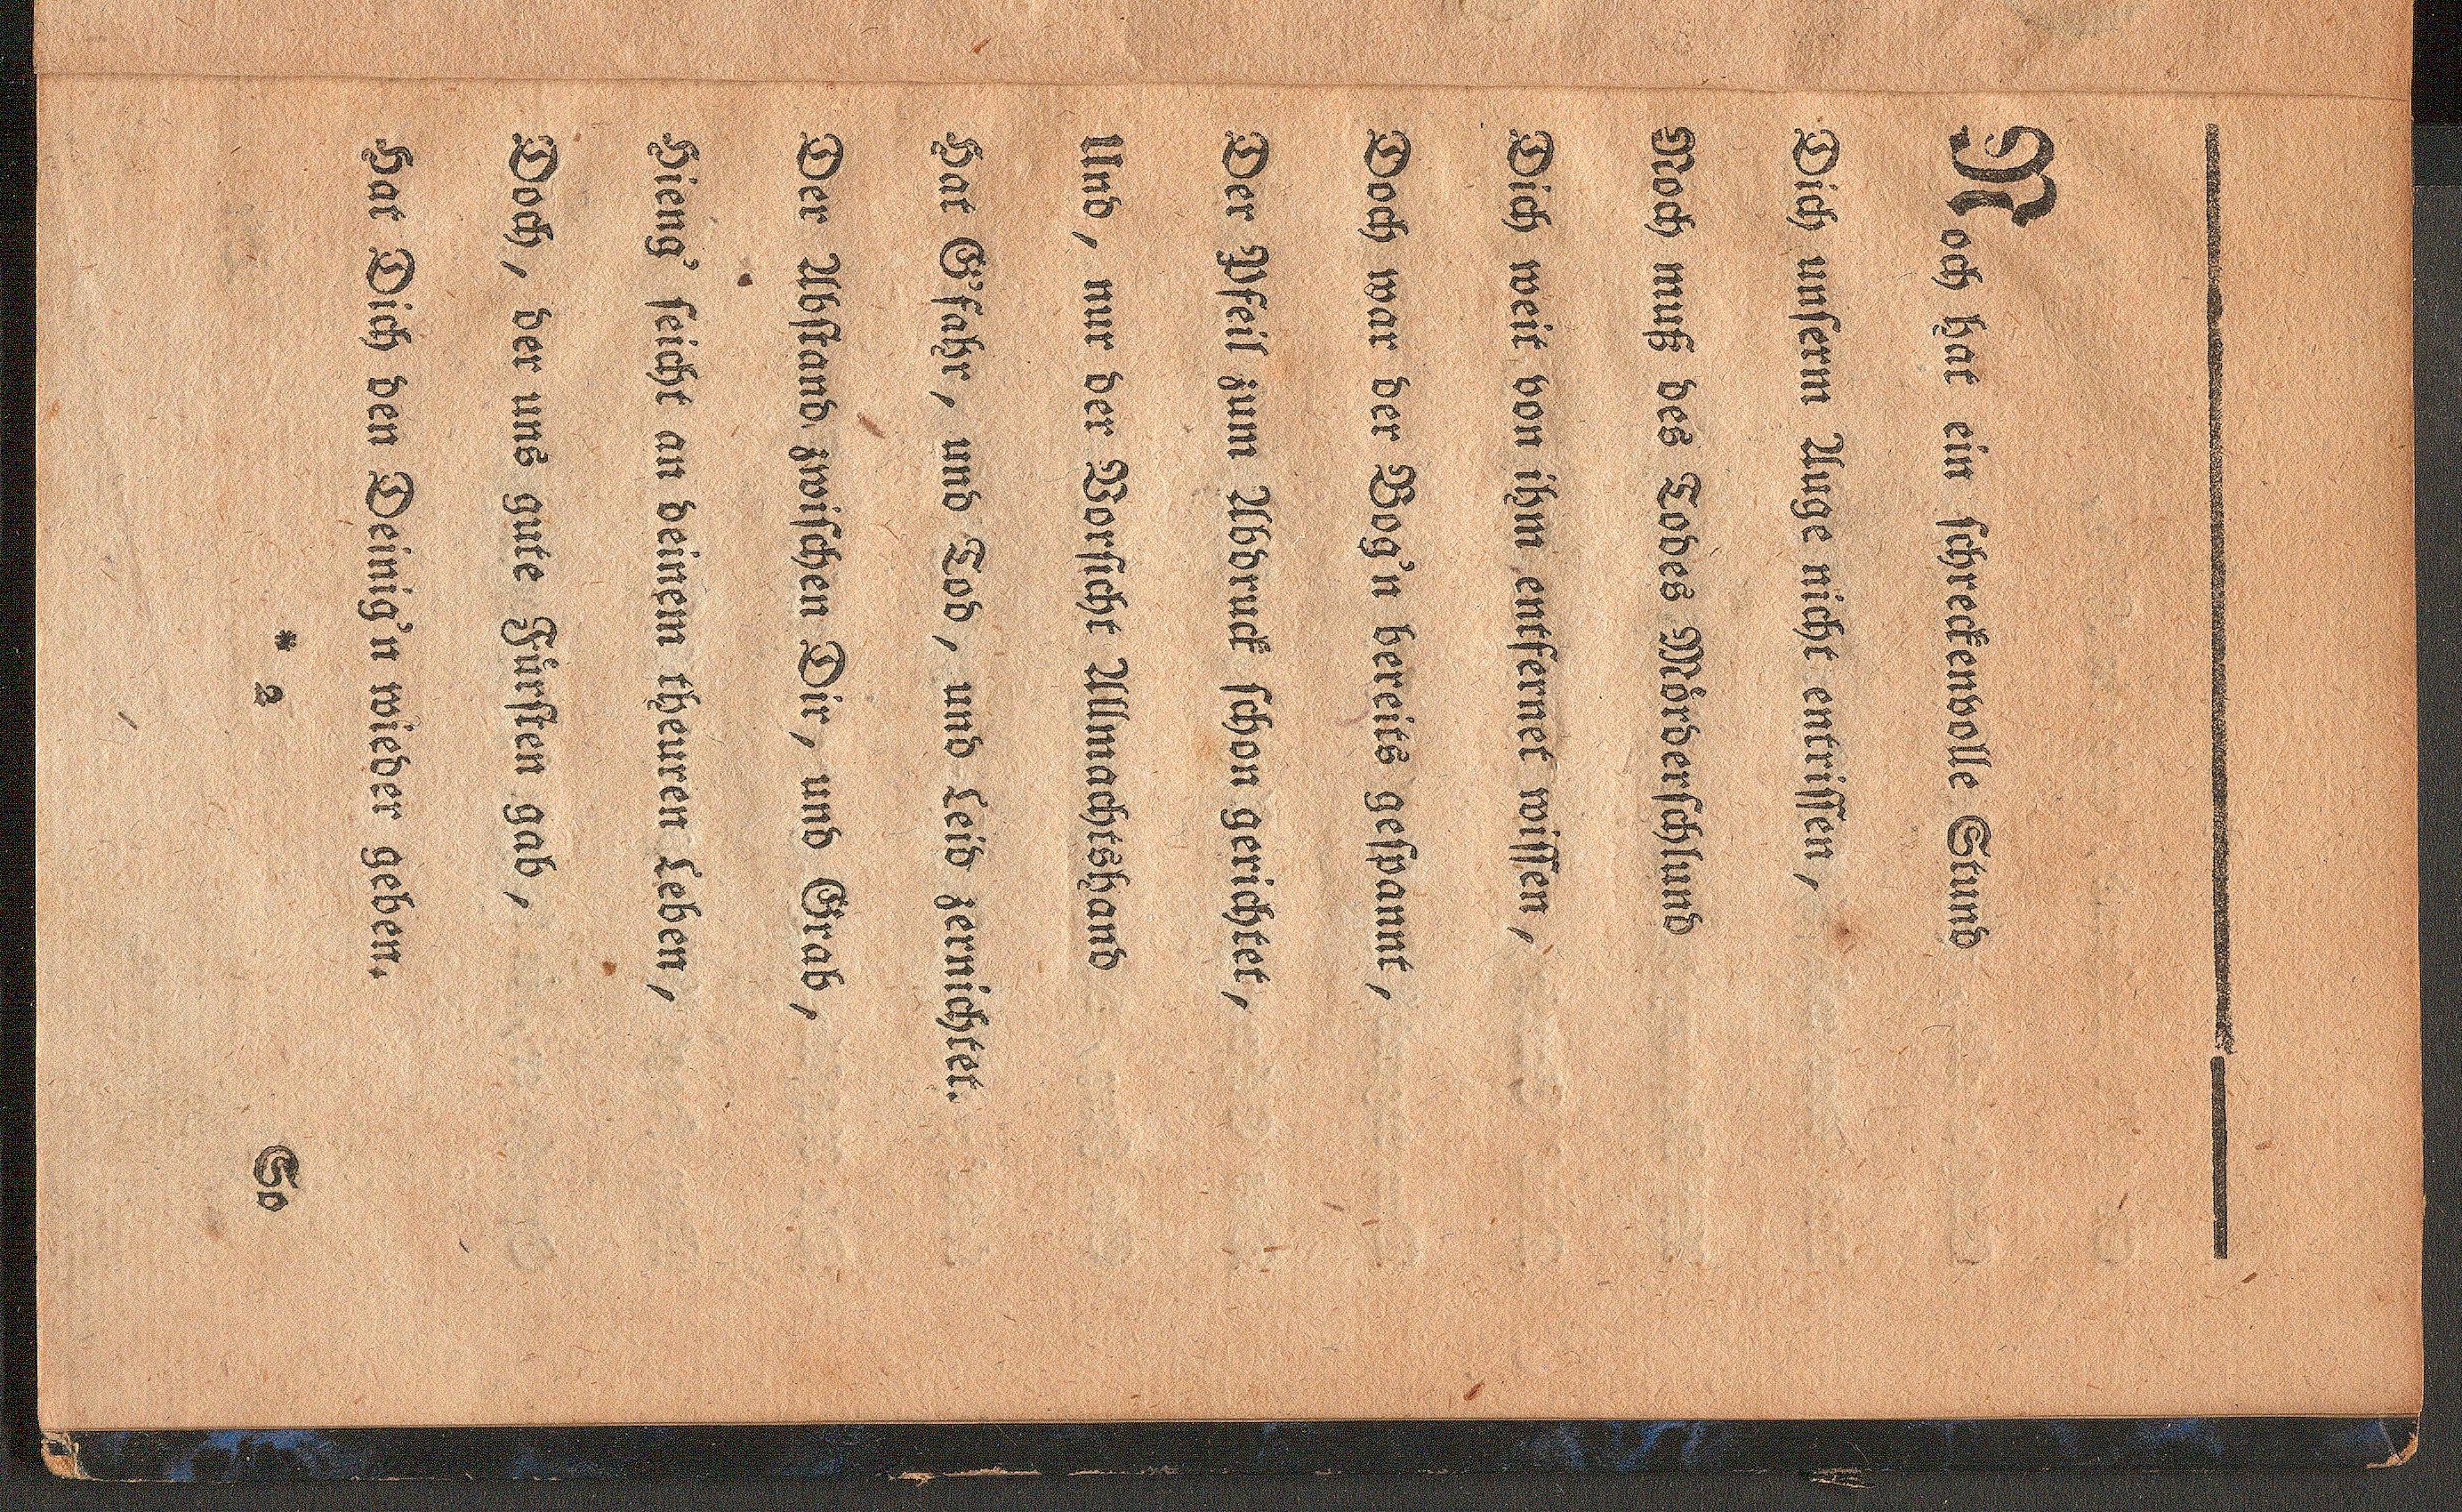 Noch hat ein schreckenvolle Stund
Dich unserm Auge nicht entrissen,
Noch muß des Todes Mörderschlund
Dich weit von ihm entfernet wissen,
Doch war der Bog'n bereits gespannt,
Der Pfeil zum Abdruck schon gerichtet,
Und, nur der Vorsicht Allmachtshand
Hat G'fahr, und Tod, und Leid zernichtet.
Der Abstand zwischen Dir, und Grab,
Hieng' leicht an deinem theuren Leben,
Doch, der uns gute Fürsten gab,
Hat Dich den Deinig'n wieder geben.
* 2 So